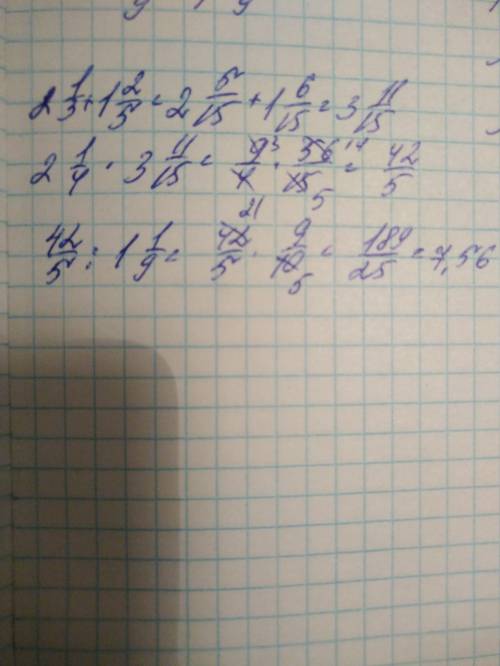 2 1/3 + 1 2/5 = 2 5/15 + 1 6/15 = 3 11/15
2 1/4 · 3 11/15 = 9 3/4 · 56 14/15 5 = 42/5
42/5 : 1 1/9 = 42 21/5 · 9/10 5 = 189/25 = 7,56